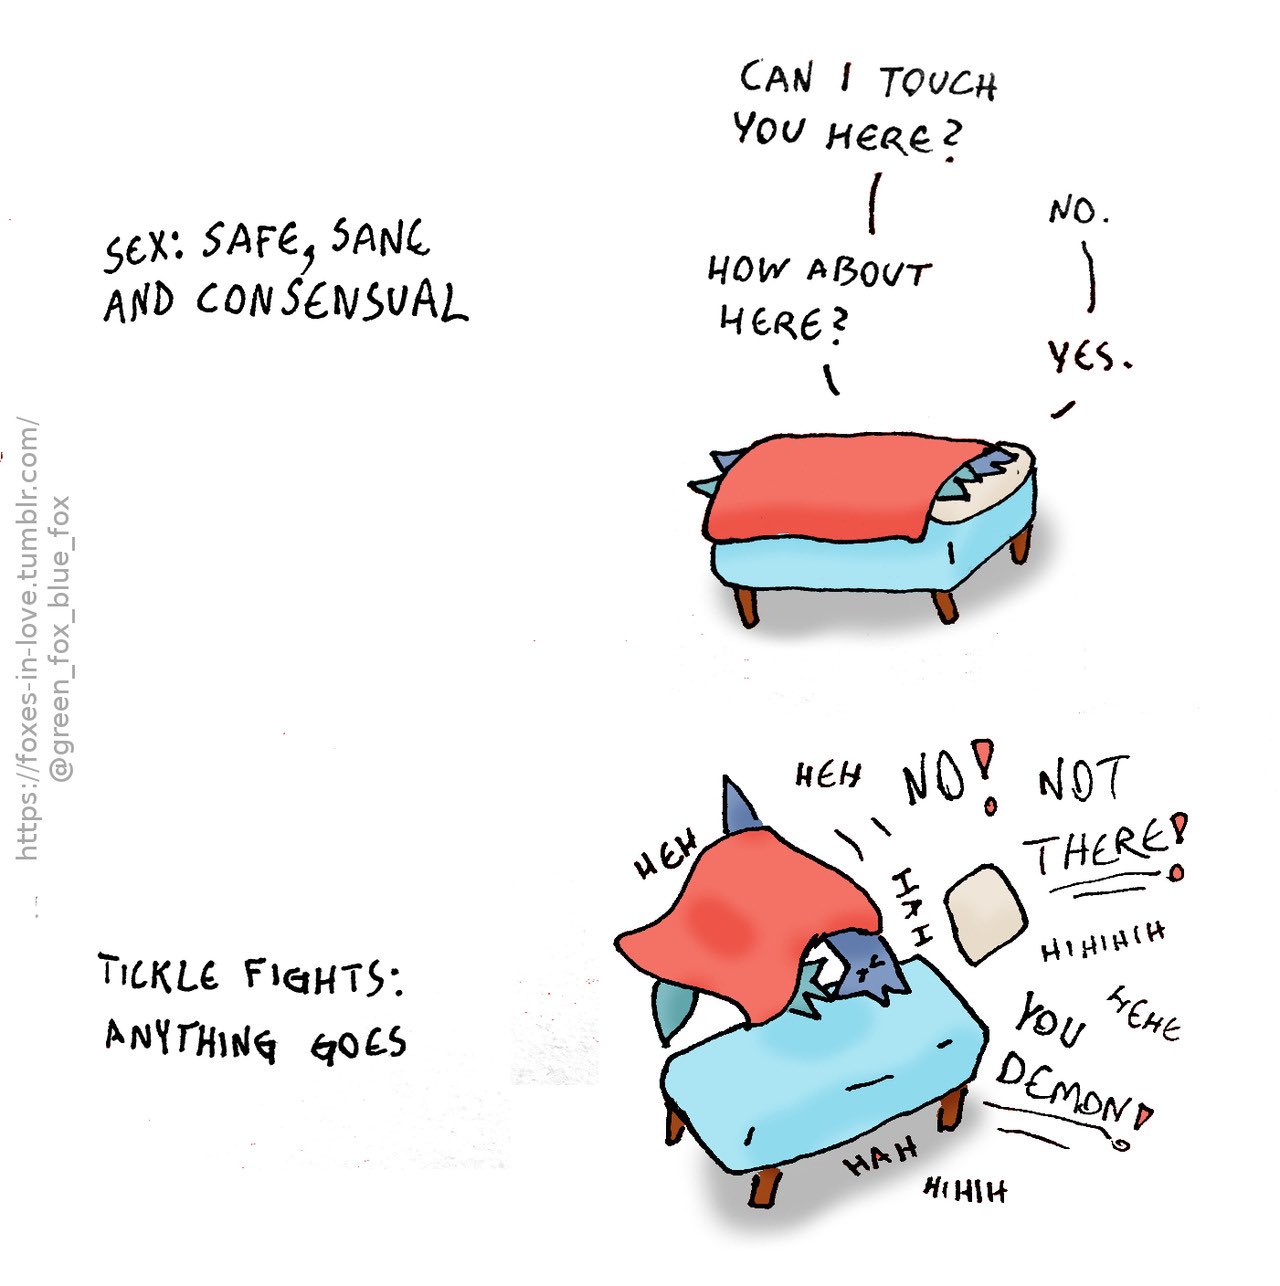 SEX: SAFE, SANE
AND CONSENSUAL
CAN I TOUCH
YOU HERE?
NO.
HOW ABOUT
HERE?
YES.
https://foxes-in-love.tumblr.com/
@green_fox_blue_fox
TICKLE FIGHTS:
ANYTHING GOES
HEH
HEH
NO! NOT
THERE!
HAH
HIHIHIH
YOU
DEMON!
HEHE
HAH
HIHIH